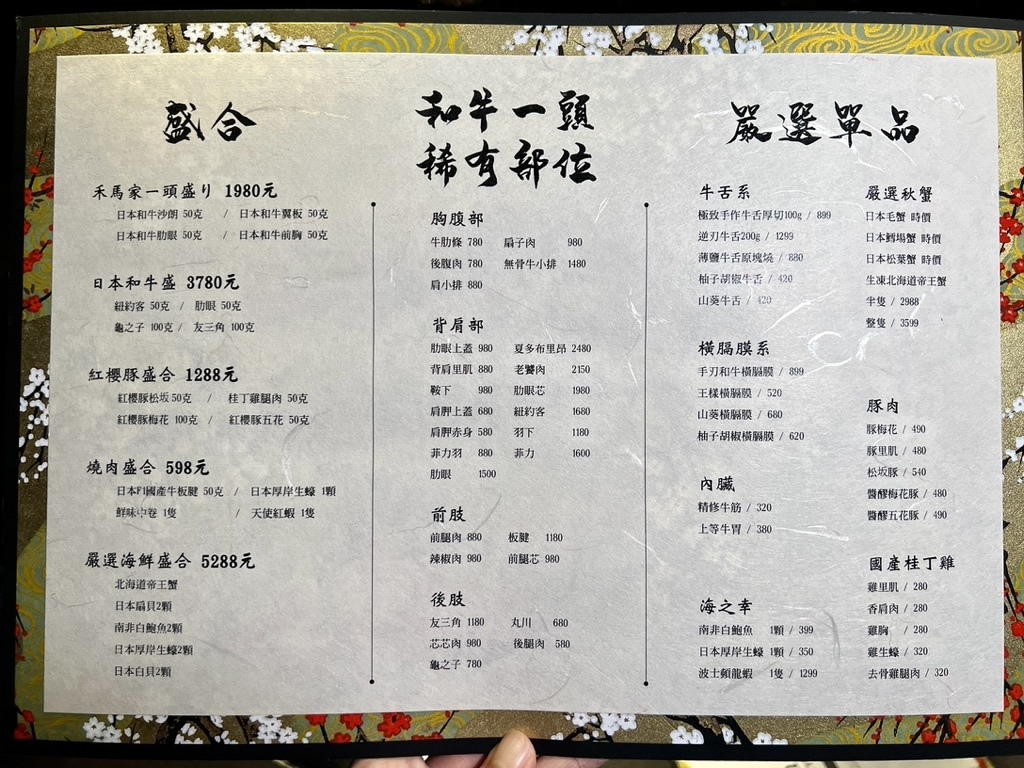 盛合
禾馬家一頭盛り 1980元
日本和牛沙朗 50克 / 日本和牛翼板 50克
日本和牛肋眼 50克 / 日本和牛前胸 50克
日本和牛盛 3780元
紐約客 50克 / 肋眼 50克
龜之子 100克 / 友三角 100克
紅櫻豚盛合 1288元
紅櫻豚松坂 50克 / 桂丁雞腿肉 50克
紅櫻豚梅花 100克 / 紅櫻豚五花 50克
燒肉盛合 598元
日本F1國產牛板腱 50克 / 日本厚岸生蠔 1顆
鮮味中卷 1隻 / 天使紅蝦 1隻
嚴選海鮮盛合 5288元
北海道帝王蟹
日本扇貝2顆
南非白鮑魚2顆
日本厚岸生蠔2顆
日本白貝2顆
和牛一頭
稀有部位
胸腹部
牛肋條 780 扇子肉 980
後腹肉 780 無骨牛小排 1480
肩小排 880
背肩部
肋眼上蓋 980 夏多布里昂 2480
背肩里肌 880 老饕肉 2150
鞍下 980 肋眼芯 1980
肩胛上蓋 680 紐約客 1680
肩胛赤身 580 羽下 1180
菲力羽 880 菲力 1600
肋眼 1500
前肢
前腿肉 880 板腱 1180
辣椒肉 980 前腿芯 980
後肢
友三角 1180 丸川 680
芯芯肉 980 後腿肉 580
龜之子 780
嚴選單品
牛舌系
極致手作牛舌厚切100g / 899
逆刃牛舌200g / 1299
薄鹽牛舌原塊燒 / 880
柚子胡椒牛舌 / 420
山葵牛舌 / 420
橫膈膜系
手刃和牛橫膈膜 / 899
王樣橫膈膜 / 520
山葵橫膈膜 / 680
柚子胡椒橫膈膜 / 620
內臟
精修牛筋 / 320
上等牛胃 / 380
海之幸
南非白鮑魚 1顆 / 399
日本厚岸生蠔 1顆 / 350
波士頓龍蝦 1隻 / 1299
嚴選秋蟹
日本毛蟹 時價
日本鱈場蟹 時價
日本松葉蟹 時價
生凍北海道帝王蟹
半隻 / 2988
整隻 / 3599
豚肉
豚梅花 / 490
豚里肌 / 480
松坂豚 / 540
醬醪梅花豚 / 480
醬醪五花豚 / 490
國產桂丁雞
雞里肌 / 280
香肩肉 / 280
雞胸 / 280
雞生蠔 / 320
去骨雞腿肉 / 320